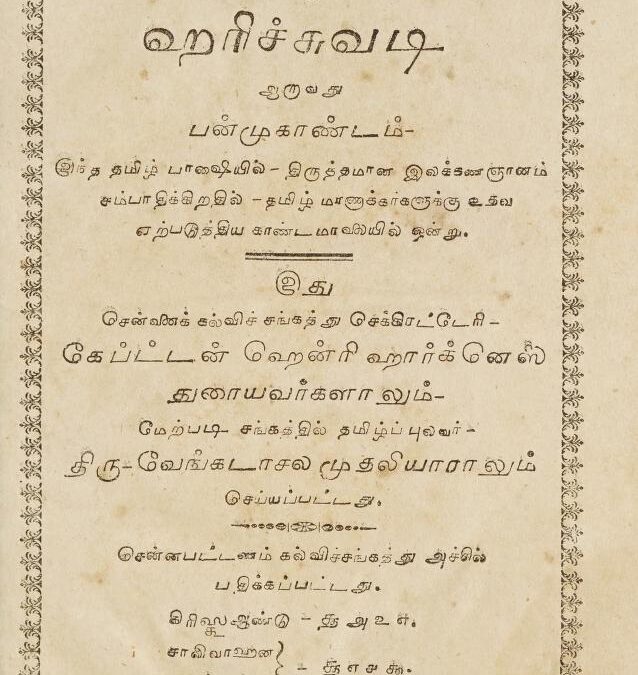 ஹரிச்சுவடி
ஆருவது
பன்முகாண்டம்-
இந்த தமிழ் பாஷையில் - திருத்தமான இலக்கணஞானம்
சம்பாதிக்கிறதில் - தமிழ் மாணாக்கர்களுக்கு உதவ
எற்படுத்திய காண்டமாலையில் ஒன்று.
இது
சென்னைக் கல்விச் சங்கத்து செக்கிரட்டேரி-
கேப்ட்டன் ஹென்றி ஹார்க்னெஸ்
துரையவர்களாலும்-
மேற்படி சங்கத்தில் தமிழ்ப் புலவர்-
திரு-வேங்கடாசல முதலியாராலும்
செய்யப்பட்டது.
சென்னபட்டணம் கல்விச்சங்கத்து அச்சில்
பதிக்கப்பட்டது.
கிரிஸ்துஆண்டு -
சாலிவாஹன } -